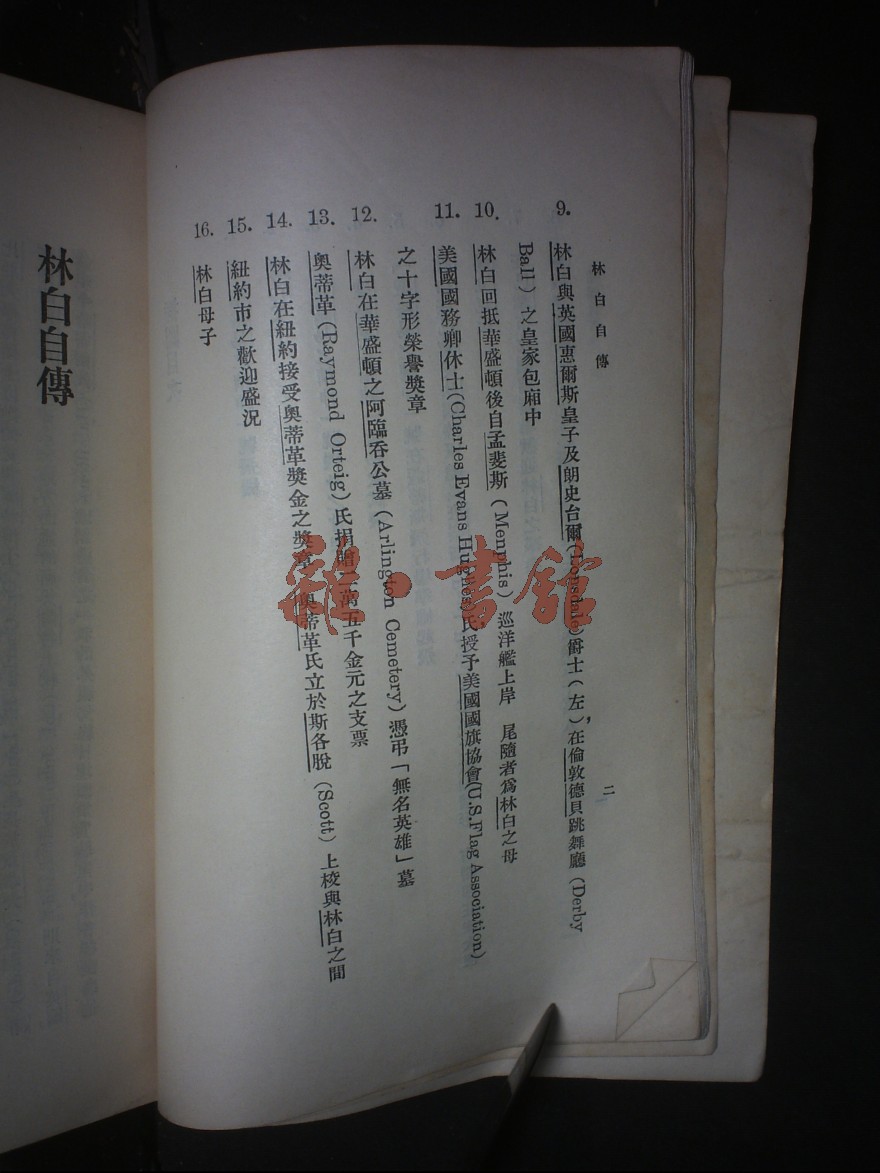 林白自傳
二
9. 林白與英國惠爾斯皇子及朗史台爾(Lonsdale)爵士(左),在倫敦德貝跳舞廳(Derby
Ball)之皇家包廂中
10. 林白回抵華盛頓後自孟斐斯(Menphis)巡洋艦上岸 尾隨者爲林白之母
11. 美國國務卿休士(Charles Evans Hughes)氏授予美國國旗協會(U.S.Flag Association)
之十字形榮譽獎章
12. 林白在華盛頓之阿臨吞公墓(Arlington Cemetery)憑弔「無名英雄」墓
13. 奧蒂革(Raymond Orteig)氏捐贈二萬五千金元之支票
14. 林白在紐約接受奧蒂革獎金之獎章 奧蒂革氏立於斯各脫(Scott)上校與林白之間
15. 紐約市之歡迎盛況
16. 林白母子
林白自傳
書館